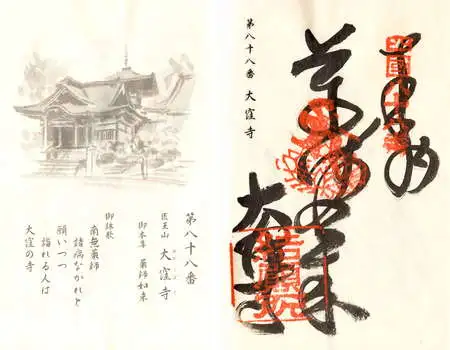 薬師如来
大窪寺
第八十八番 大窪寺
第八十八番
医王山 大窪寺
御本尊 薬師如来
御詠歌
南無薬師
諸病なかれと
願いつつ
詣れる人は
大窪の寺